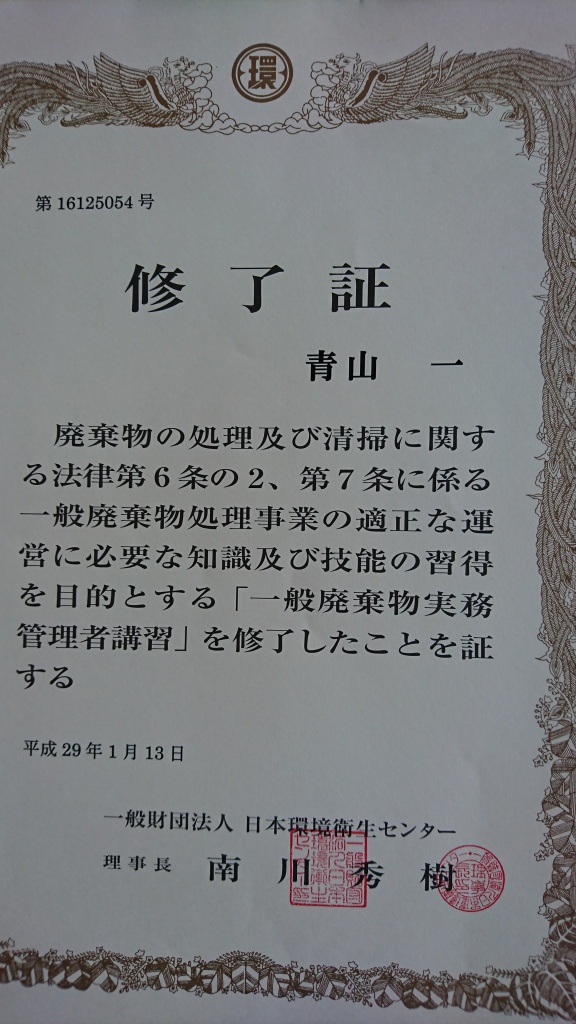 環
第16125054号
修了証
青山 一
廃棄物の処理及び清掃に関す
る法律第6条の2、第7条に係る
一般廃棄物処理事業の適正な運
営に必要な知識及び技能の習得
を目的とする「一般廃棄物実務
管理者講習」を修了したことを証
する
平成29年1月13日
一般財団法人 日本環境衛生センター
理事長 南川秀樹